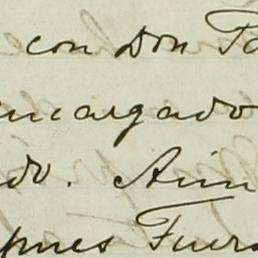 con Don Pa
encargado
do. Aun
pues Fuer